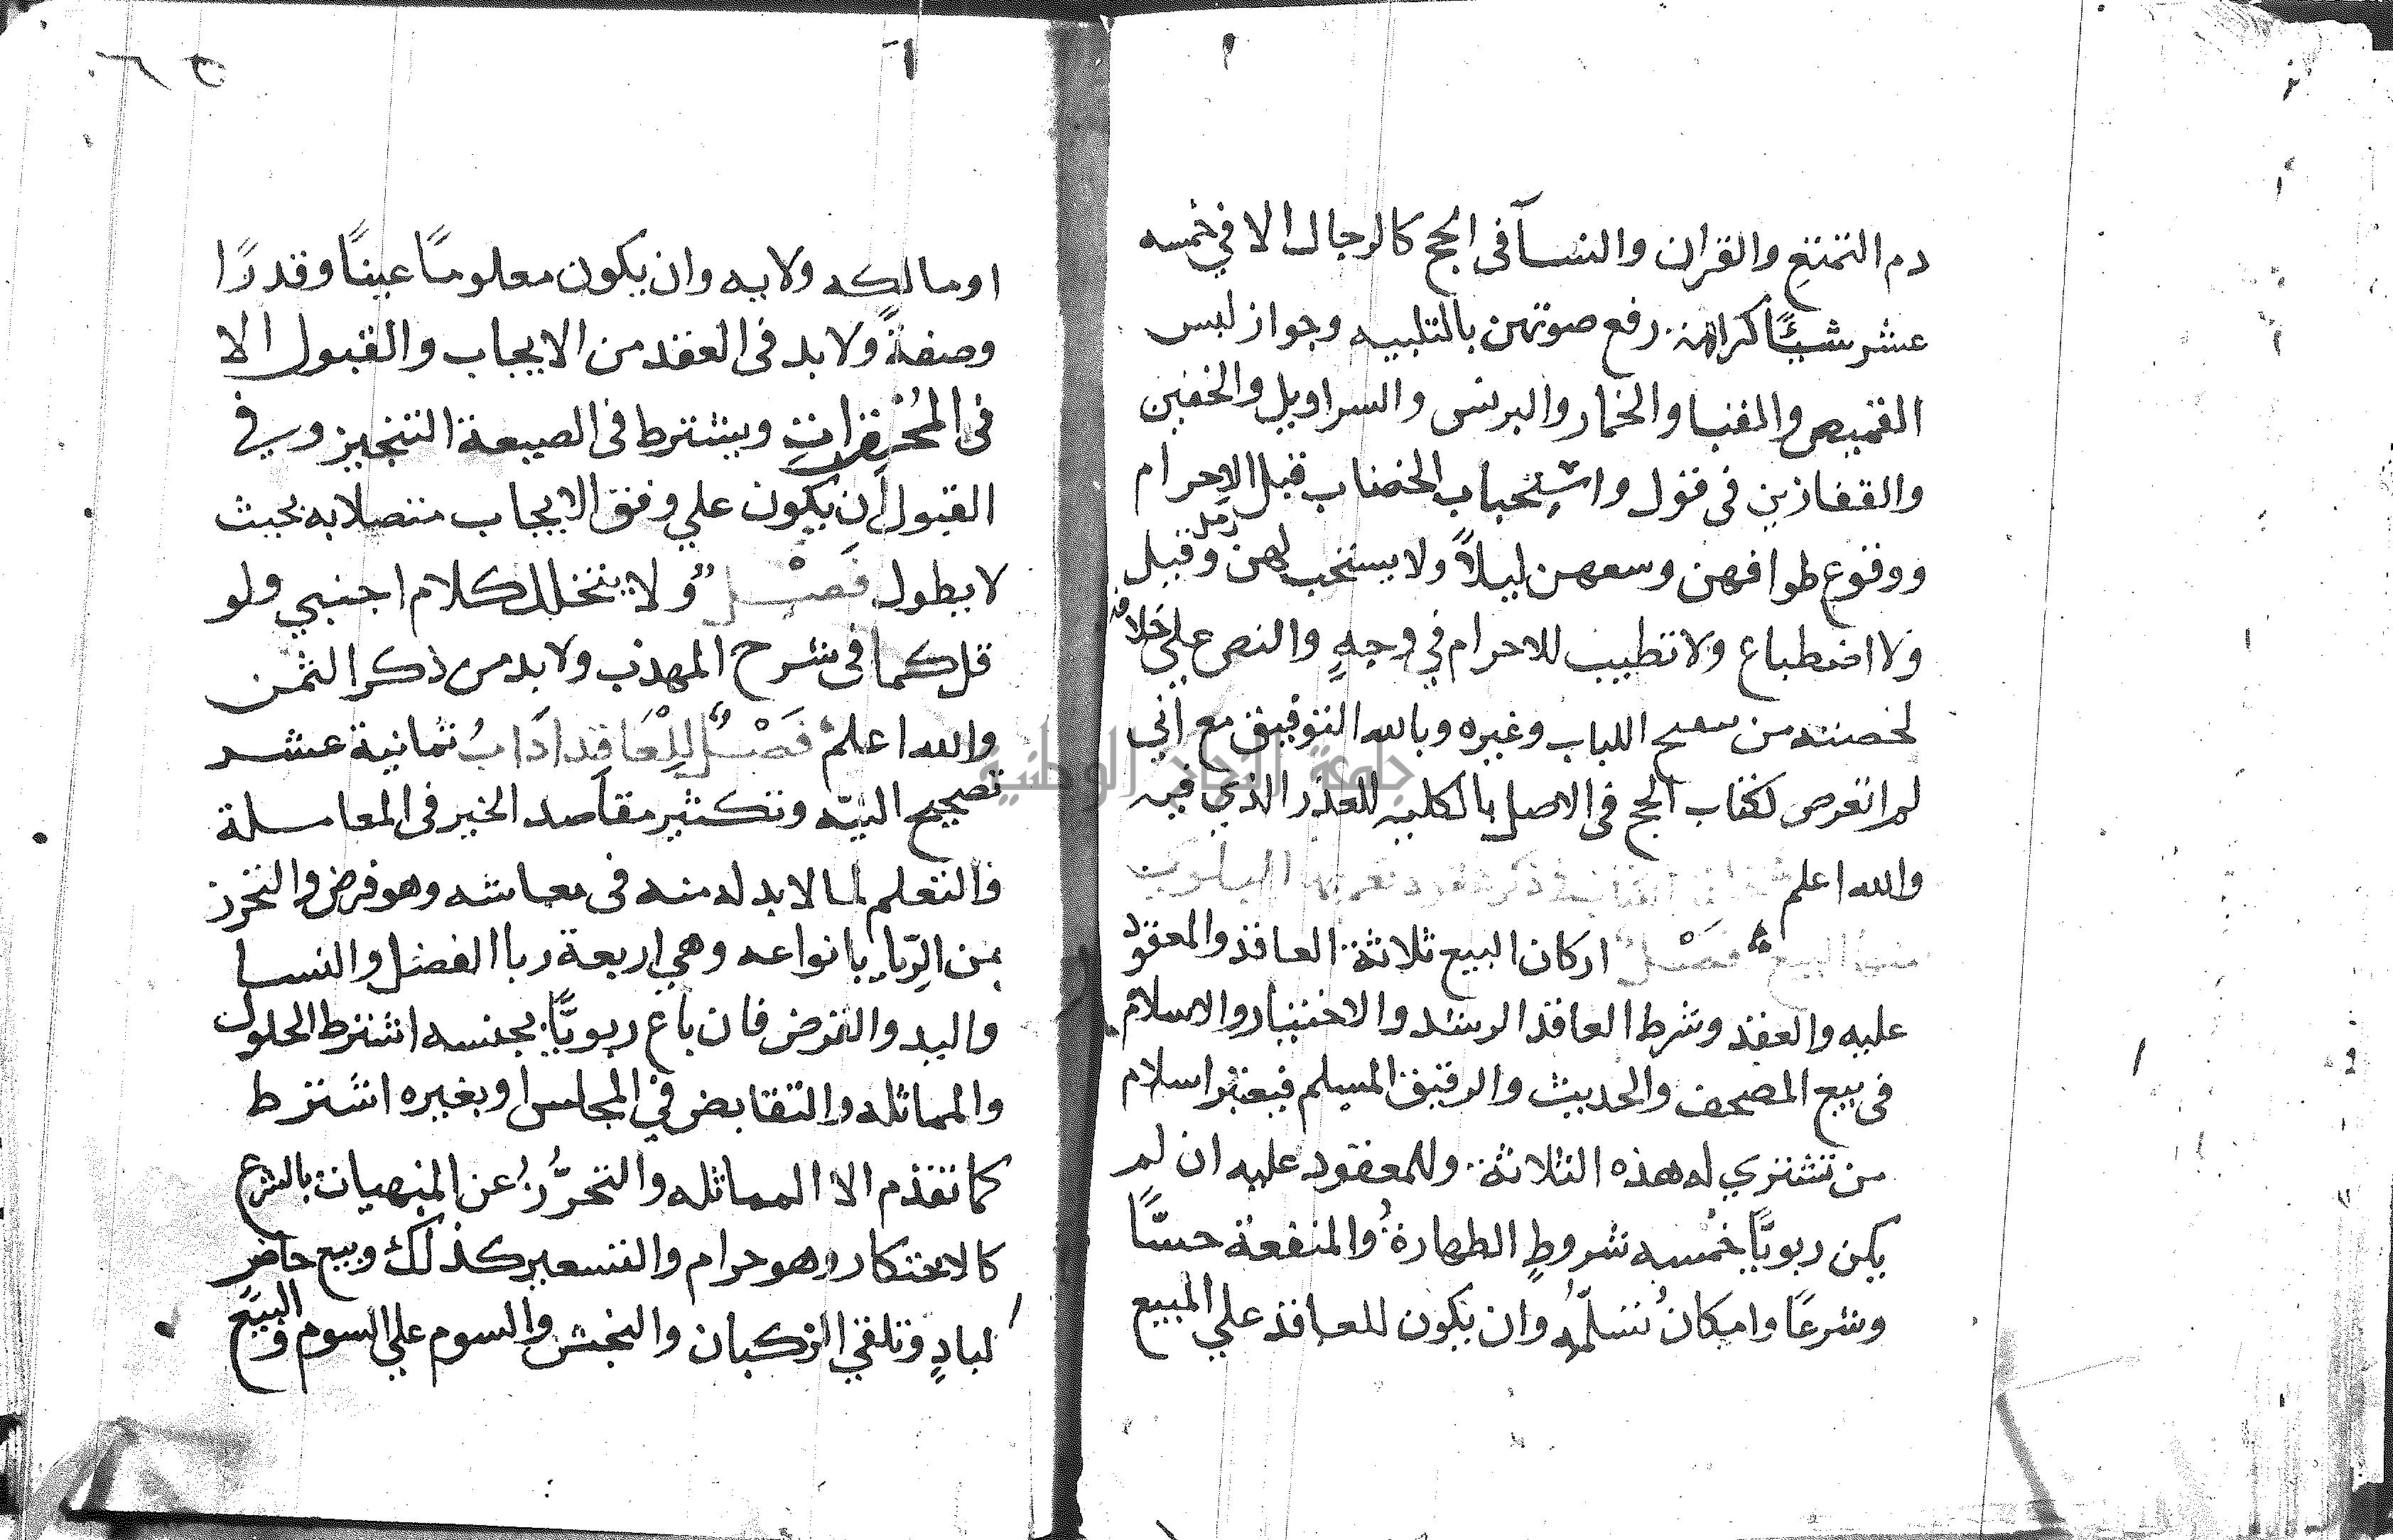 دم التمتع والقران والنسآ فى الحج كالرجال الا في خمسه
عشر شيئًا كراهة رفع صوتهن بالتلبيه وجواز لبس
القميص والقبا والخمار والبرنس والسراويل والخفين
والقفازين فى قول واستحباب الخضاب قبل الاحرام
ووقوع طوافهن وسعهن ليلاً ولا يستحب لهن رمل وقيل
ولا اضطباع ولا تطيب للاحرام في وجهٍ والنص علي خلافه
لخصته من اللباب وغيره وبالله التوفيق مع اني
لم اتعرض لكتاب الحج فى الاصل بالكليه للعذر الذي فيه
والله اعلم
البيع فَصْل اركان البيع ثلاثة العاقد والمعقود
عليه والعقد وشرط العاقد الرشد والاختيار والاسلام
فى بيع المصحف والحديث والرقيق المسلم فيعتبر اسلام
من تشتري له هذه الثلاثة وللمعقود عليه ان لم
يكن ربويًّا خمسه شروطٍ الطهارةُ والمنفعة حسًّا
وشرعًا وامكان تسلّمه وان يكون للعاقد علي المبيع
او مالكه ولايه وان يكون معلومًا عينًا وقدرًا
وصفةً ولا بد فى العقد من الايجاب والقبول الا
فى المُحَقرات ويشترط فى الصيعة التنجيز وفي
القبول أن يكون علي وفق الايجاب متصلا به بحيث
لا يطول فَصْل ولا يتخلل كلام اجنبي ولو
قل كما فى شرح المهذب ولا بد من ذكر الثمن
والله اعلم فَصْلٌ لِلْعَاقد اَدَابُ ثمانية عشر
تصحيح النيّه وتكثير مقاصد الخير فى المعاملة
والتعلم لما لا بد له منه فى معاشه وهو فرض والتحرز
من الرِّبا بانواعه وهي اربعة ربا الفضل والنسا
واليد والقرض فان باع ربويًّا بجنسه اشترط الحلول
والمماثله والتقابض في المجلس او بغيره اشترط
كما تقدم الا المماثله والتحرُّز عن المنهيات بالشرع
كالاحتكار وهو حرام والتسعير كذلك وبيع حاضر
لبادٍ وتلقي الركبان والنجش والسوم علي السوم والبيع
جامعة النجاح الوطنية